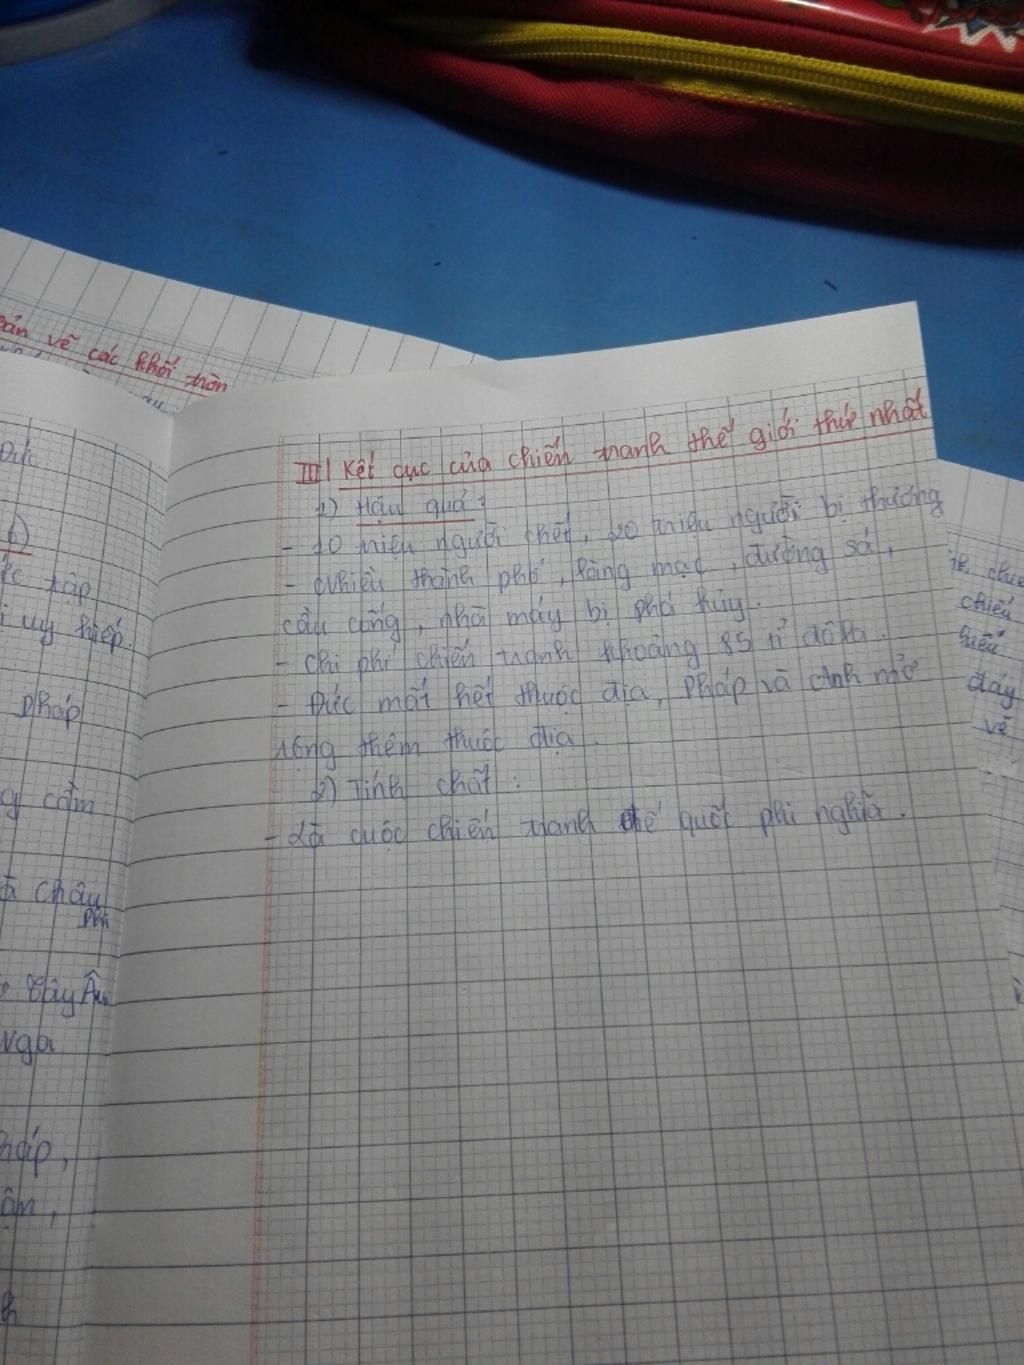 bản vẽ các khối tròn
III| Kết cục của chiến tranh thế giới thứ nhất
1) Hậu quả :
- 10 triệu người chết, 20 triệu người bị thương
- Nhiều thành phố, làng mạc, đường sá,
cầu cống, nhà máy bị phá hủy.
- Chi phí chiến tranh khoảng 85 tỉ đôla.
- Đức mất hết thuộc địa, Pháp và Anh mở
rộng thêm thuộc địa.
2) Tính chất :
- Là cuộc chiến tranh đế quốc phi nghĩa.
Đức
b)
tập
uy hiếp.
Pháp
cầm
Châu
Phi
Tây Âu
Nga
chiến
đáy
vẽ